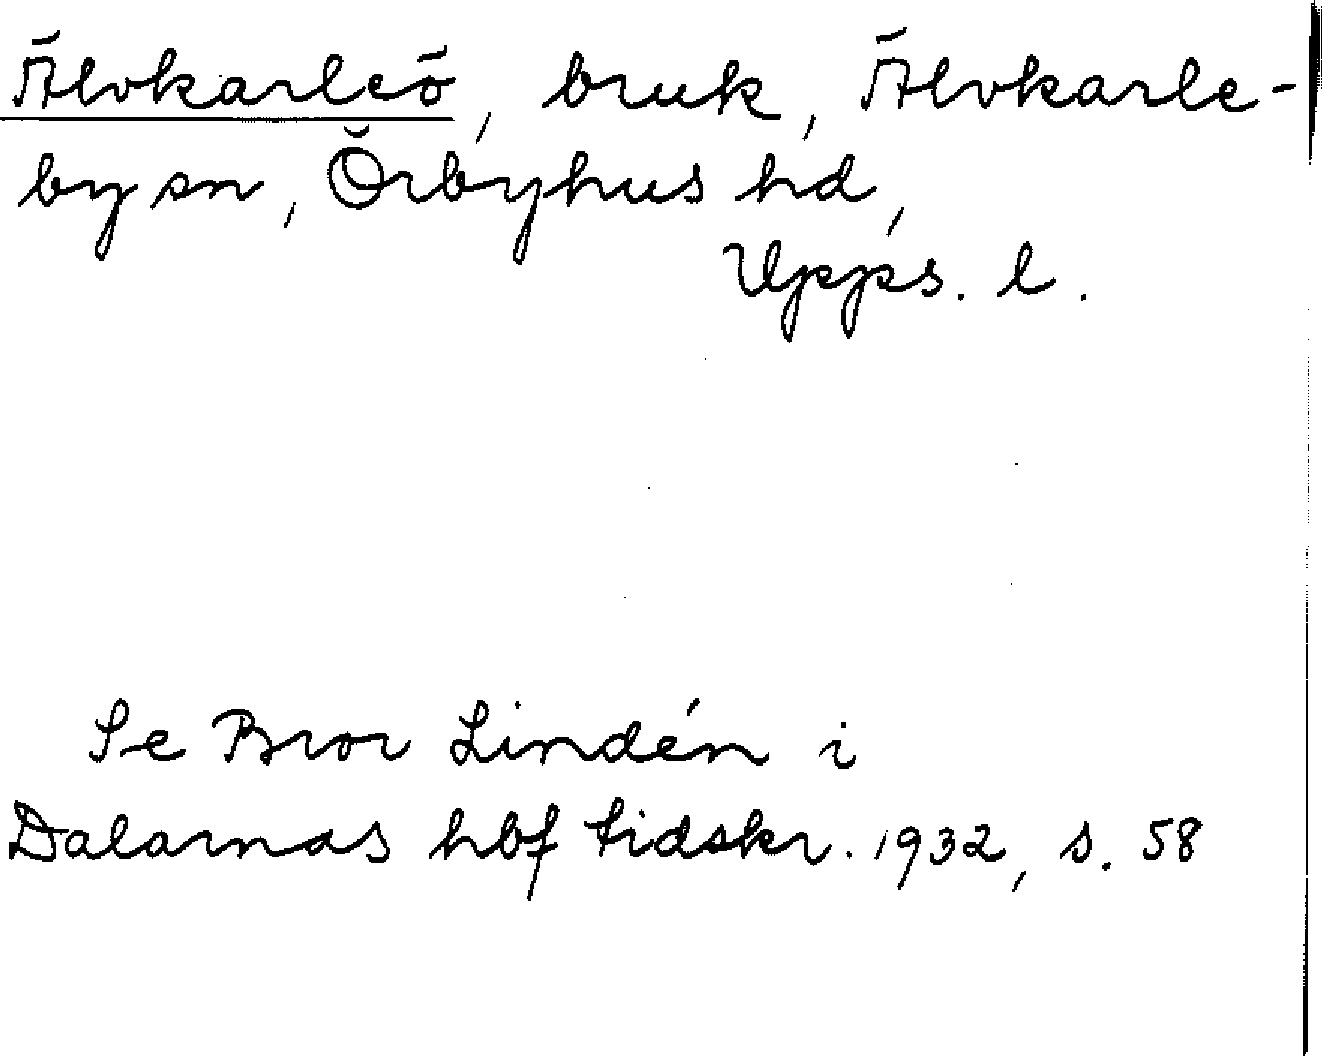 Älvkarleö, bruk, Älvkarle-
by sn, Örbyhus hd,
Upps. l.
Se Bror Lindén i
Dalarnas hbf tidskr. 1932, s. 58